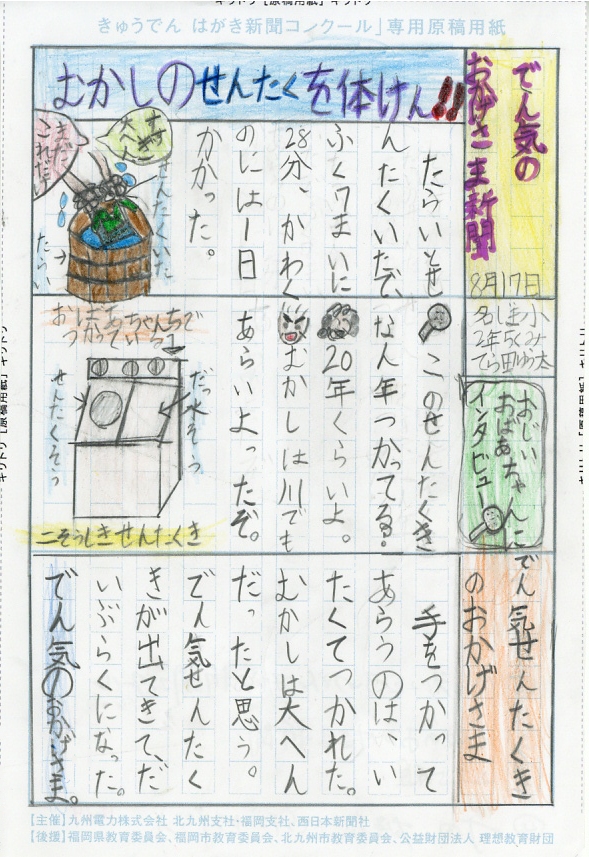 きゅうでん はがき新聞コンクール」専用原稿用紙
でん気の
おかげさま新聞
8月17日
2年5くみ
むかしのせんたくを体けん!!
たらいとせ
んたくいたで、
ふく7まいに
28分、かわく
のには1日
かかった。
まだ
これだけ
せんたくいた
たらい
おじい
おばあちゃんに
インタビュー
このせんたくき
なん年つかってる?
20年くらいよ。
むかしは川でも
あらいよったぞ。
おばあちゃんちで
つかっている
だっ水そう
せんたくそう
二そうしきせんたくき
でん気せんたくき
のおかげさま
手をつかって
あらうのは、い
たくてつかれた。
むかしは大へん
だったと思う。
でん気せんたく
きが出てきて、だ
いぶらくになった。
でん気のおかげさま。
【主催】九州電力株式会社 北九州支社・福岡支社、西日本新聞社
【後援】福岡県教育委員会、福岡市教育委員会、北九州市教育委員会、公益財団法人 理想教育財団